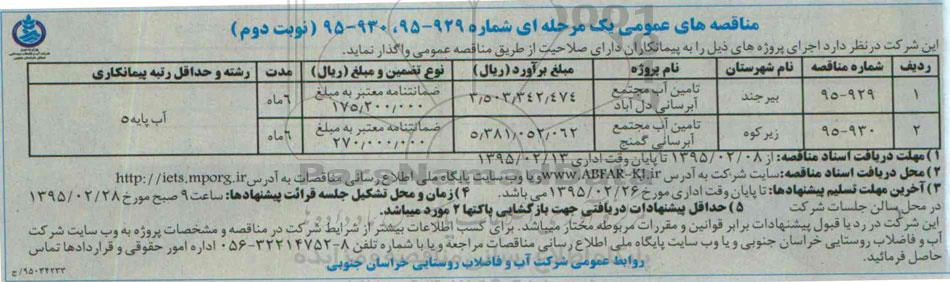 مناقصه های عمومی یک مرحله ای شماره ۹۲۹-۹۵، ۹۳۰-۹۵ (نوبت دوم)
این شرکت در نظر دارد اجرای پروژه های ذیل را به پیمانکاران دارای صلاحیت از طریق مناقصه عمومی واگذار نماید.
ردیف شماره مناقصه نام شهرستان نام پروژه مبلغ برآورد (ریال) نوع تضمین و مبلغ (ریال) مدت رشته و حداقل رتبه پیمانکاری
۱ ۹۵-۹۲۹ بیرجند تامین آب مجتمع آبرسانی دل آباد ۳/۵۰۳/۳۴۲/۴۷۴ ضمانتنامه معتبر به مبلغ ۱۷۵/۲۰۰/۰۰۰ ۶ماه آب پایه ۵
۲ ۹۵-۹۳۰ زیرکوه تامین آب مجتمع آبرسانی گمنج ۵/۳۸۱/۰۵۲/۰۶۲ ضمانتنامه معتبر به مبلغ ۲۷۰/۰۰۰/۰۰۰ ۶ماه
۱) مهلت دریافت اسناد مناقصه: از ۱۳۹۵/۰۲/۰۸ تا پایان وقت اداری ۱۳۹۵/۰۲/۱۳
۲) محل دریافت اسناد مناقصه: سایت شرکت به آدرس www.ABFAR-KJ.ir و یا وب سایت پایگاه ملی اطلاع رسانی مناقصات به آدرس http://iets.mporg.ir
۳) آخرین مهلت تسلیم پیشنهادها: تا پایان وقت اداری مورخ ۱۳۹۵/۰۲/۲۶ می باشد. ۴) زمان و محل تشکیل جلسه قرائت پیشنهادها: ساعت ۹ صبح مورخ ۱۳۹۵/۰۲/۲۸
در محل سالن جلسات شرکت ۵) حداقل پیشنهادات دریافتی جهت بازگشایی پاکتها ۲ مورد میباشد.
این شرکت در رد یا قبول پیشنهادات برابر قوانین و مقررات مربوطه مختار میباشد. برای کسب اطلاعات بیشتر از شرایط شرکت در مناقصه و مشخصات پروژه به وب سایت شرکت
آب و فاضلاب روستایی خراسان جنوبی و یا وب سایت پایگاه ملی اطلاع رسانی مناقصات مراجعه و یا با شماره تلفن ۸-۳۲۲۱۴۷۵۲-۰۵۶ اداره امور حقوقی و قراردادها تماس
حاصل فرمائید.
روابط عمومی شرکت آب و فاضلاب روستایی خراسان جنوبی
۹۵۰۳۴۲۳۳/ج